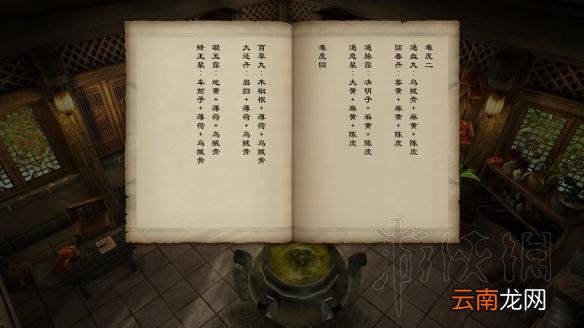 难度二
通血丸：乌贼骨+麻黄+陈皮
回春丹：姜黄+麻黄+陈皮
通脉露：决明子+麻黄+陈皮
通息浆：大黄+麻黄+陈皮
难度四
百草丸：木椒根+薄荷+乌贼骨
大还丹：当归+薄荷+乌贼骨
凝玉露：地黄+薄荷+乌贼骨
蜂王浆：车前子+薄荷+乌贼骨
游侠网
云南龙网